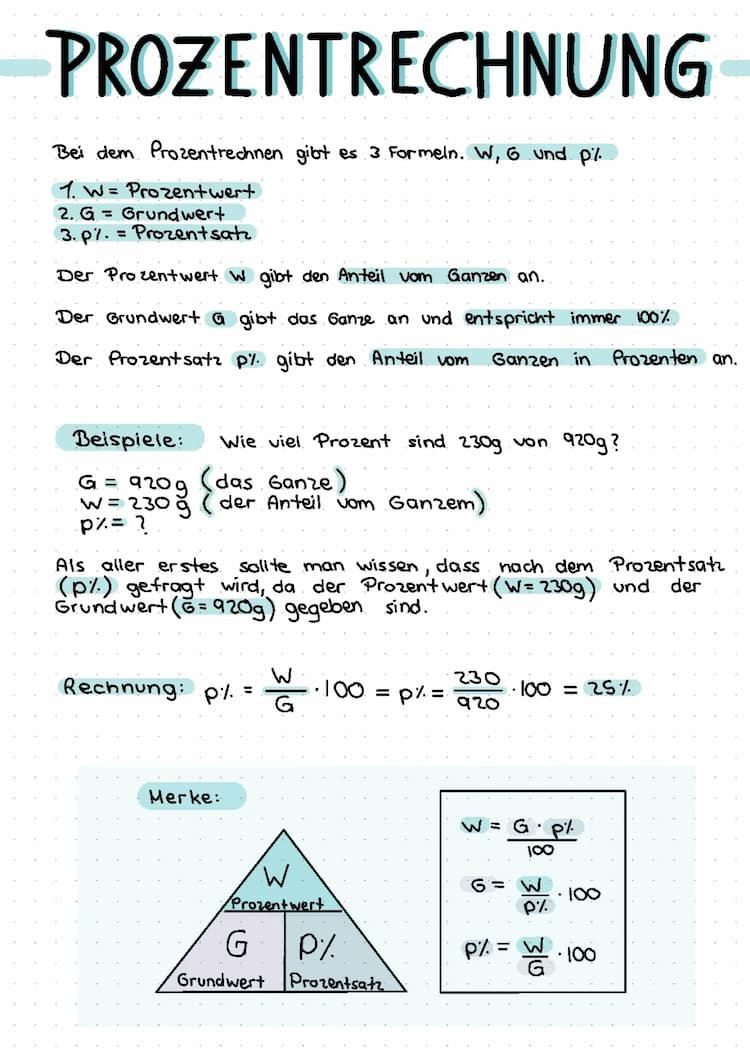 PROZENTRECHNUNG
Bei dem Prozentrechnen gibt es 3 Formeln. W, G und p%
1. W = Prozentwert
2. G = Grundwert
3. p%. = Prozentsatz
Der Prozentwert W gibt den Anteil vom Ganzen an.
Der Grundwert G gibt das Ganze an und entspricht immer 100%
Der Prozentsatz p% gibt den Anteil vom Ganzen in Prozenten an.
Beispiele: Wie viel Prozent sind 230g von 920g?
G = 920g (das Ganze)
W = 230g (der Anteil vom Ganzem)
p% = ?
Als aller erstes sollte man wissen, dass nach dem Prozentsatz
(p%) gefragt wird, da der Prozentwert (W = 230g) und der
Grundwert (G = 920g) gegeben sind.
Rechnung: p% = W/G · 100 = p% = 230/920 · 100 = 25%
Merke:
W
Prozentwert
G P%
Grundwert Prozentsatz
W = G · p%/100
G = W/p% · 100
p% = W/G · 100